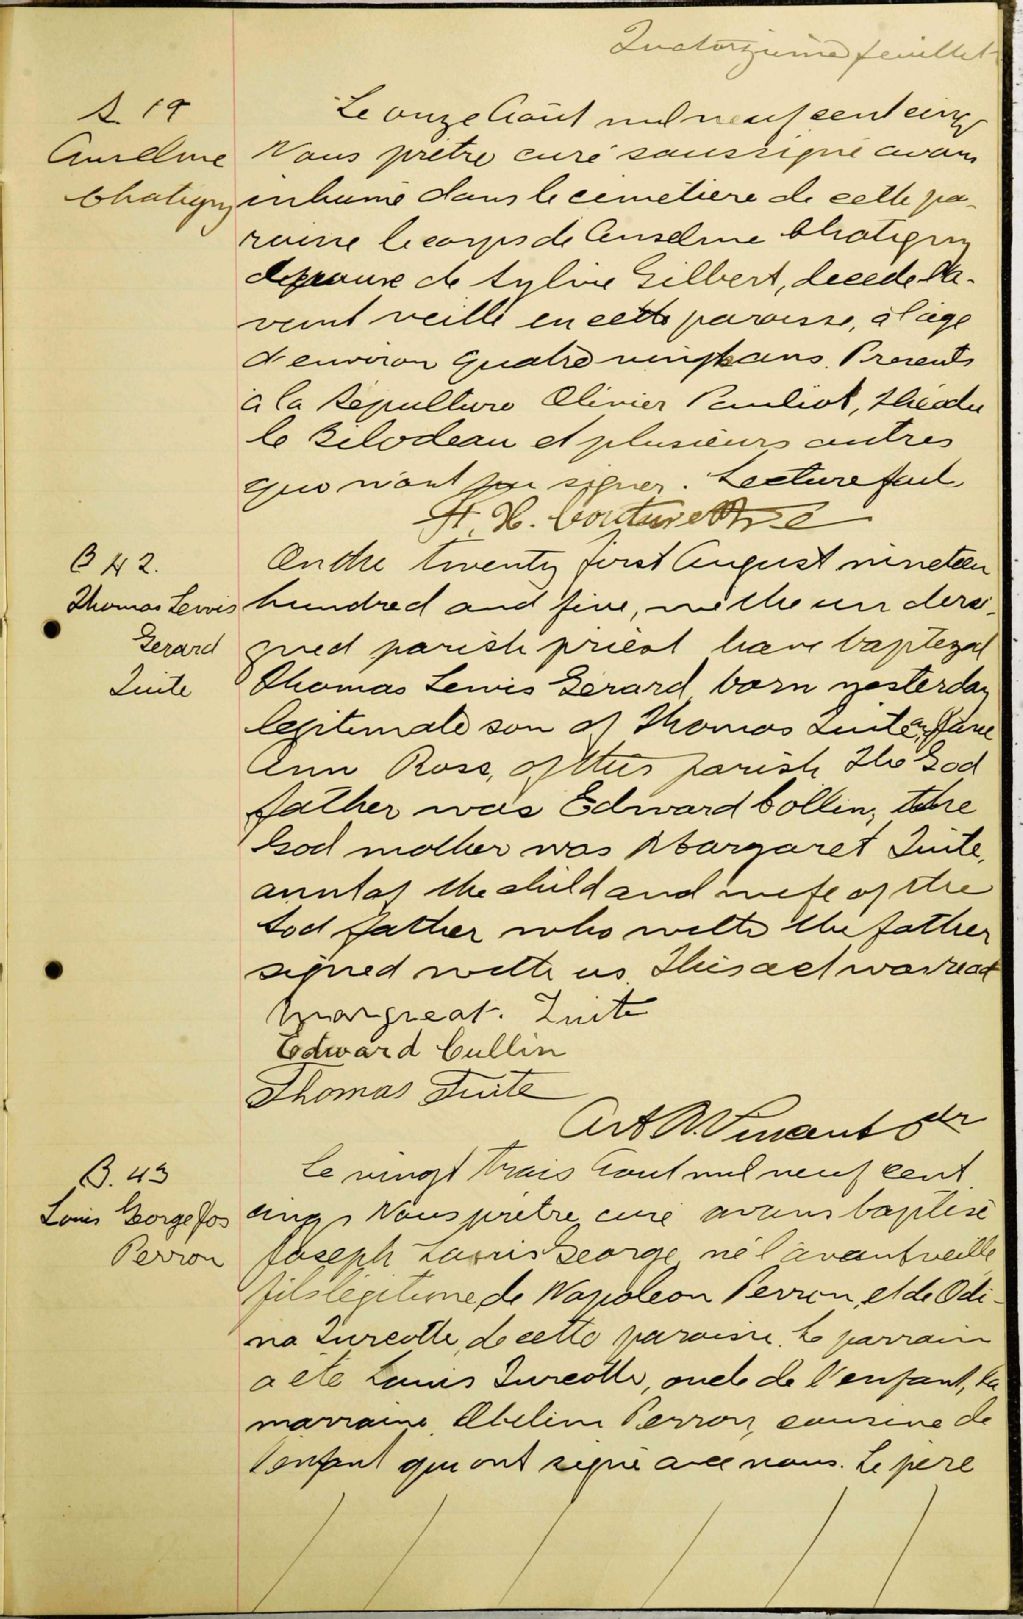 Quatorzième feuillet
S. 19
Anselme
Chatigny
Le onze Août mil neuf cent cinq
Nous prêtre curé soussigné avons
inhumé dans le cimetière de cette pa-
roisse le corps de Anselme Chatigny
époux de Sylvie Gilbert, décédé l'a-
vant veille en cette paroisse, à l'âge
d'environ quatre vingt ans. Presents
à la sépulture Olivier Pouliot, Théodu
le Bilodeau et plusieurs autres
qui n'ont pu signer. Lecture faite.
F. X. Couture Ptre
B 42.
Thomas Lewis
Gerard
Tuite
On the twenty first August nineteen
hundred and five, we the undersi-
gned parish priest have baptezed
Thomas Lewis Gerard, born yesterday
legitimate son of Thomas Tuite and Jane
Ann Ross, of this parish. The God
father was Edward Collin; the
God mother was Margaret Tuite,
aunt of the child and wife of the
God father who with the father
signed with us. This act was read
Margreat. Tuite
Edward Cullin
Thomas Tuite
Vincent ptr
B. 43
Louis George Jos
Perron
Le vingt trois Aout mil neuf cent
cinq, Nous prêtre, curé avons baptisé
Joseph Louis George, né l'avant veille
fils légitime, de Napoleon Perron, et de Odi-
na Turcotte, de cette paroisse. Le parrain
a été Louis Turcotte, oncle de l'enfant, la
marraine Obeline Perron, cousine de
l'enfant qui ont signé avec nous. Le père